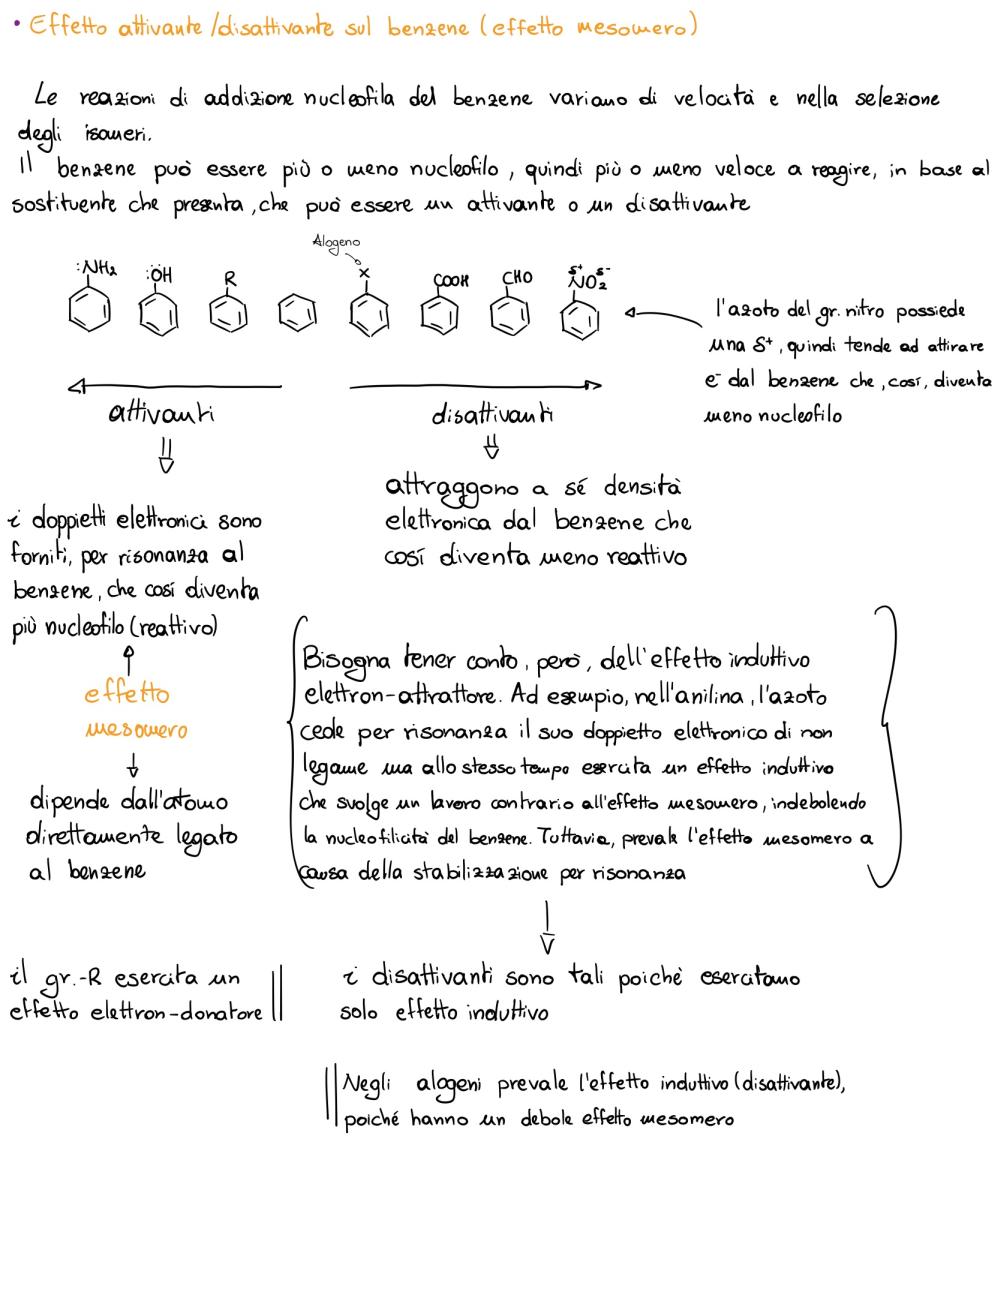 • Effetto attivante/disattivante sul benzene (effetto mesomero)
Le reazioni di addizione nucleofila del benzene variano di velocità e nella selezione
degli isomeri.
Il benzene può essere più o meno nucleofilo, quindi più o meno veloce a reagire, in base al
sostituente che presenta, che può essere un attivante o un disattivante
Alogeno
:NH₂ :ÖH R X COOH CHO δ⁺ δ⁻ NO₂
l'azoto del gr. nitro possiede
una δ⁺, quindi tende ad attirare
e⁻ dal benzene che, così, diventa
meno nucleofilo
attivanti
disattivanti
i doppietti elettronici sono
forniti, per risonanza al
benzene, che così diventa
più nucleofilo (reattivo)
attraggono a sé densità
elettronica dal benzene che
così diventa meno reattivo
effetto
mesomero
dipende dall'atomo
direttamente legato
al benzene
Bisogna tener conto, però, dell'effetto induttivo
elettron-attrattore. Ad esempio, nell'anilina, l'azoto
cede per risonanza il suo doppietto elettronico di non
legame ma allo stesso tempo esercita un effetto induttivo
che svolge un lavoro contrario all'effetto mesomero, indebolendo
la nucleofilicità del benzene. Tuttavia, prevale l'effetto mesomero a
causa della stabilizzazione per risonanza
il gr. -R esercita un
effetto elettron-donatore
i disattivanti sono tali poichè esercitano
solo effetto induttivo
Negli alogeni prevale l'effetto induttivo (disattivante),
poiché hanno un debole effetto mesomero